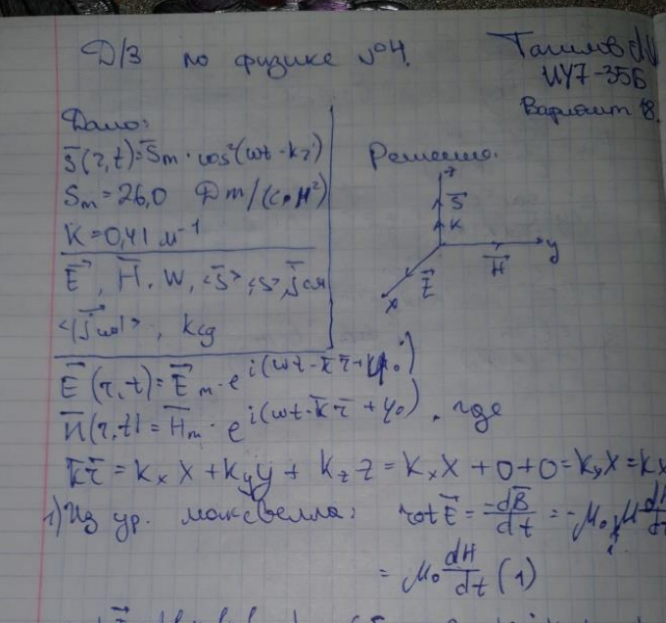 Д/З по физике №4.
Тагимов
ИУ7-35Б
Вариант 18.
Дано:
S̄(z,t)=S̄m·cos²(ωt-kz)
Sm=26,0 Дж/(с·м²)
K=0,41 м⁻¹
E⃗, H̄, W, <S̄>, <S>, j̄см
<|j̄см|>, Kед
Решение.
z
S̄
K
y
H̄
E⃗
x
Ē(r,t)=Ēm·e^i(ωt-k̄r̄+φ₀)
H̄(r,t)=H̄m·e^i(ωt-k̄r̄+φ₀), где
k̄r̄=kx x+ky y+kz z=kx x+0+0=kx x=kx
1) Из ур. максвелла: rotĒ=-dB̄/dt=-μ₀μ
=μ₀ dH/dt (1)